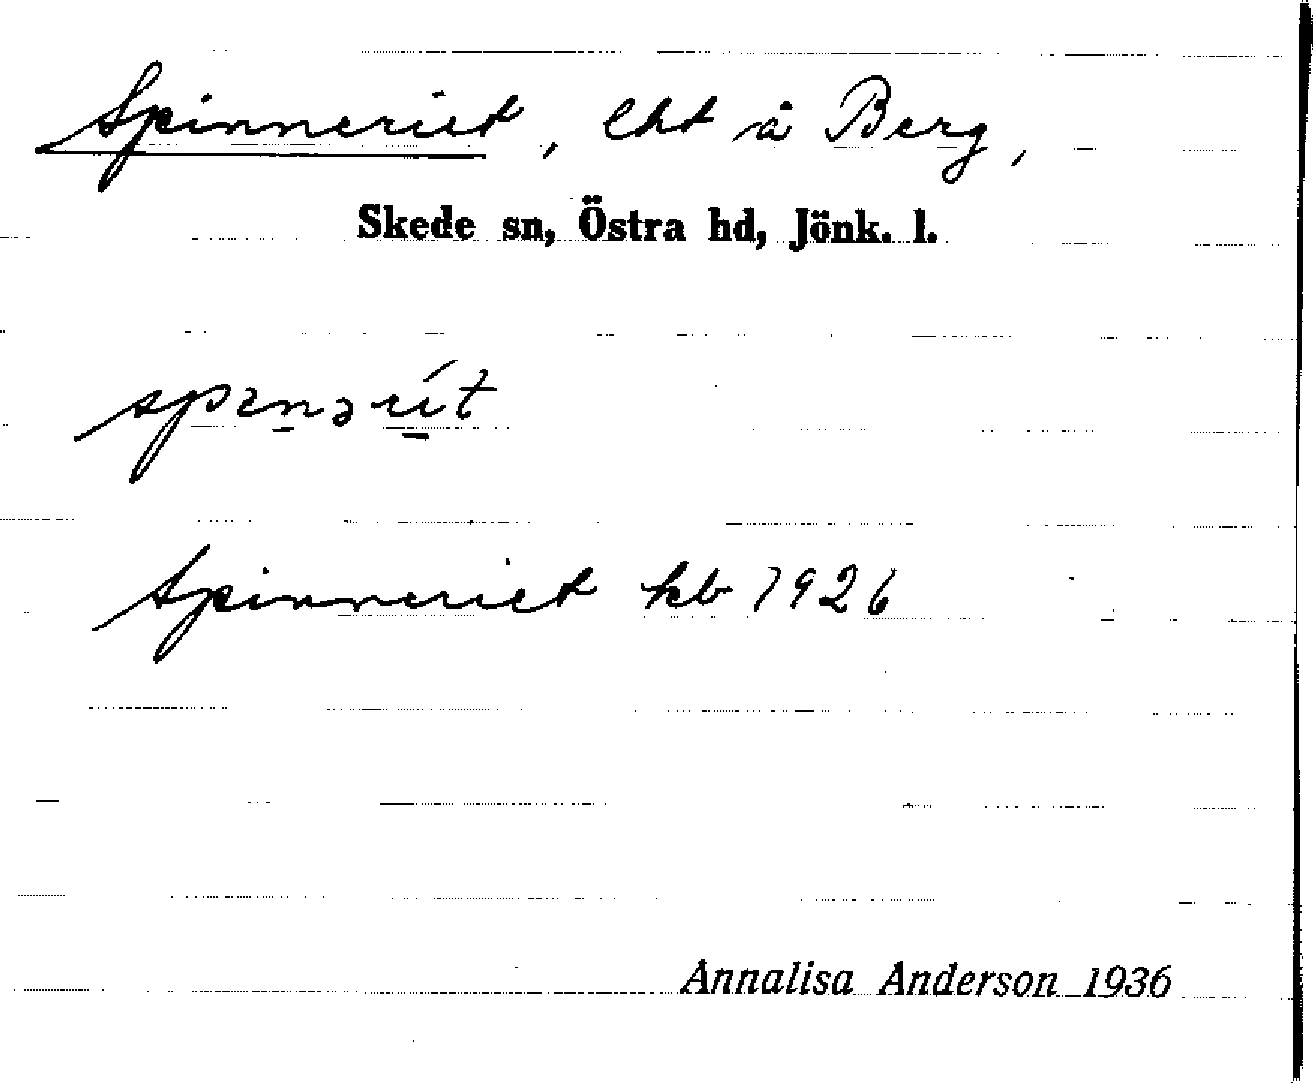 Spinneriet, lht å Berg,
Skede sn, Östra hd, Jönk. l.
Spinneriet kb 1926
Annalisa Anderson 1936